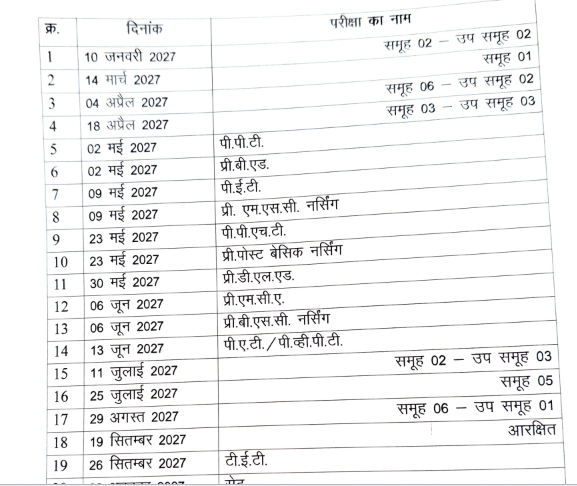 क्र. दिनांक परीक्षा का नाम
1 10 जनवरी 2027 समूह 02 – उप समूह 02
2 14 मार्च 2027 समूह 01
3 04 अप्रैल 2027 समूह 06 – उप समूह 02
4 18 अप्रैल 2027 समूह 03 – उप समूह 03
5 02 मई 2027 पी.पी.टी.
6 02 मई 2027 प्री.बी.एड.
7 09 मई 2027 पी.ई.टी.
8 09 मई 2027 प्री. एम.एस.सी. नर्सिंग
9 23 मई 2027 पी.पी.एच.टी.
10 23 मई 2027 प्री.पोस्ट बेसिक नर्सिंग
11 30 मई 2027 प्री.डी.एल.एड.
12 06 जून 2027 प्री.एम.सी.ए.
13 06 जून 2027 प्री.बी.एस.सी. नर्सिंग
14 13 जून 2027 पी.ए.टी./पी.व्ही.पी.टी.
15 11 जुलाई 2027 समूह 02 – उप समूह 03
16 25 जुलाई 2027 समूह 05
17 29 अगस्त 2027 समूह 06 – उप समूह 01
18 19 सितम्बर 2027 आरक्षित
19 26 सितम्बर 2027 टी.ई.टी.